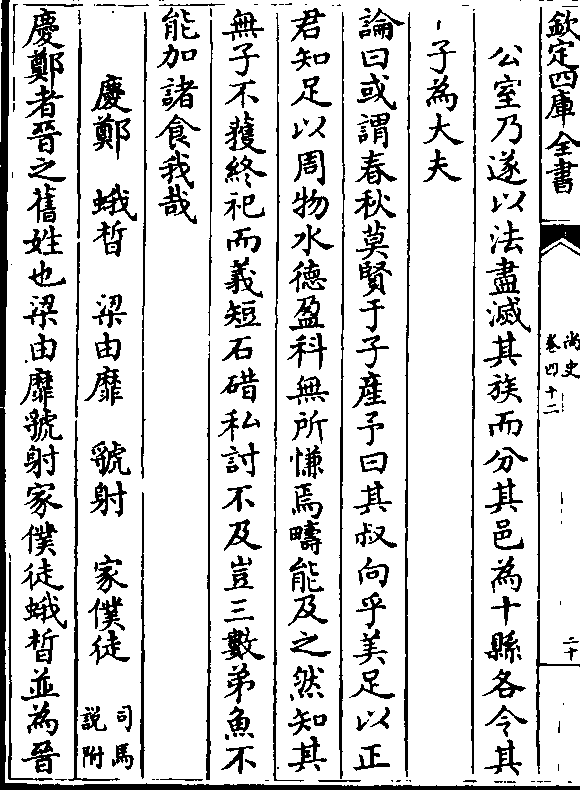 欽定四庫全書
尚史
卷四十二
二十
公室乃遂以法盡滅其族而分其邑為十縣各令其
子為大夫
論曰或謂春秋莫賢于子產予曰其叔向乎美足以正
君知足以周物水德盈科無所慊焉疇能及之然知其
無子不獲終祀而義短石碏私討不及豈三數弟魚不
能加諸食我哉
慶鄭　蛾晳　梁由靡　虢射　家僕徒　司馬說附
慶鄭者晉之舊姓也梁由靡虢射家僕徒蛾晳並為晉